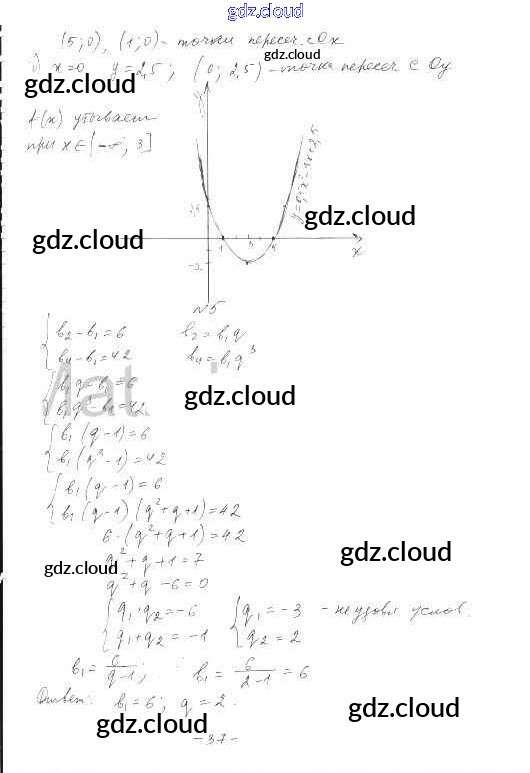 gdz.cloud
(5; 0), (1; 0) - точки пересеч. с Ox
gdz.cloud
x=0 y=2,5; (0; 2,5) - точка пересеч с Oy
gdz.cloud
gdz.cloud
f(x) убывает
при x∈(-∞; 3]
y
y=0,5x²-3x+2,5
2,5
gdz.cloud
gdz.cloud
1 3 5 x
-2
№5
b₂-b₁=6 b₂=b₁q
b₄-b₁=42 b₄=b₁q³
b₁q-b₁=6
Mat
gdz.cloud
b₁q³-b₁=42
b₁(q-1)=6
b₁(q³-1)=42
b₁(q-1)=6
b₁(q-1)(q²+q+1)=42
6·(q²+q+1)=42
gdz.cloud
q²+q+1=7
gdz.cloud
q²+q-6=0
q₁·q₂=-6 q₁=-3 - не удовл. услов.
q₁+q₂=-1 q₂=2
b₁=6/(q-1); b₁=6/(2-1)=6
Ответ: b₁=6; q=2.
gdz.cloud
gdz.cloud
-37-